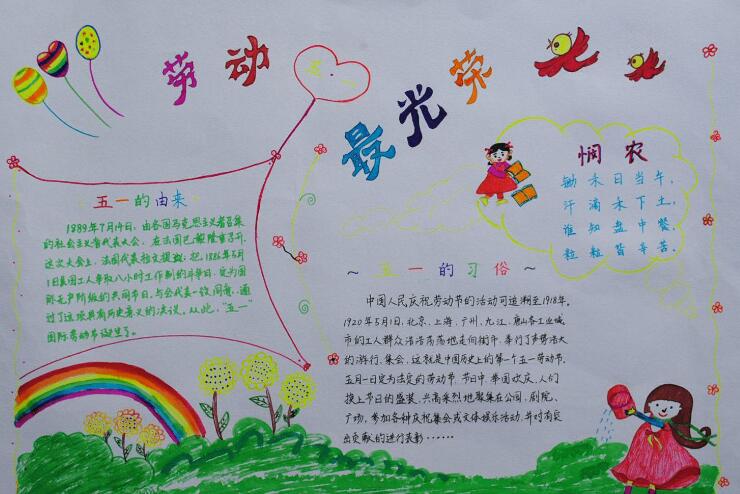 劳动最光荣
五·一
五一的由来
1889年7月14日，由各国马克思主义者召集
的社会主义者代表大会，在法国巴黎隆重召开，
这次大会上，法国代表拉文提议：把1886年5月
1日美国工人争取八小时工作制的斗争日，定为国
际无产阶级的共同节日，与会代表一致同意，通
过了这项具有历史意义的决议，从此，"五一"
国际劳动节诞生了。
悯农
锄禾日当午，
汗滴禾下土，
谁知盘中餐，
粒粒皆辛苦。
～五一的习俗～
中国人民庆祝劳动节的活动可追溯至1918年。
1920年5月1日，北京、上海、广州、九江、唐山各工业城
市的工人群众浩浩荡荡地走向街市、举行了声势浩大
的游行、集会，这就是中国历史上的第一个五一劳动节。
五月一日定为法定的劳动节，节日中，举国欢庆，人们
换上节日的盛装，兴高采烈地聚集在公园、剧院、
广场，参加各种庆祝集会或文体娱乐活动，并对有突
出贡献的进行表彰……